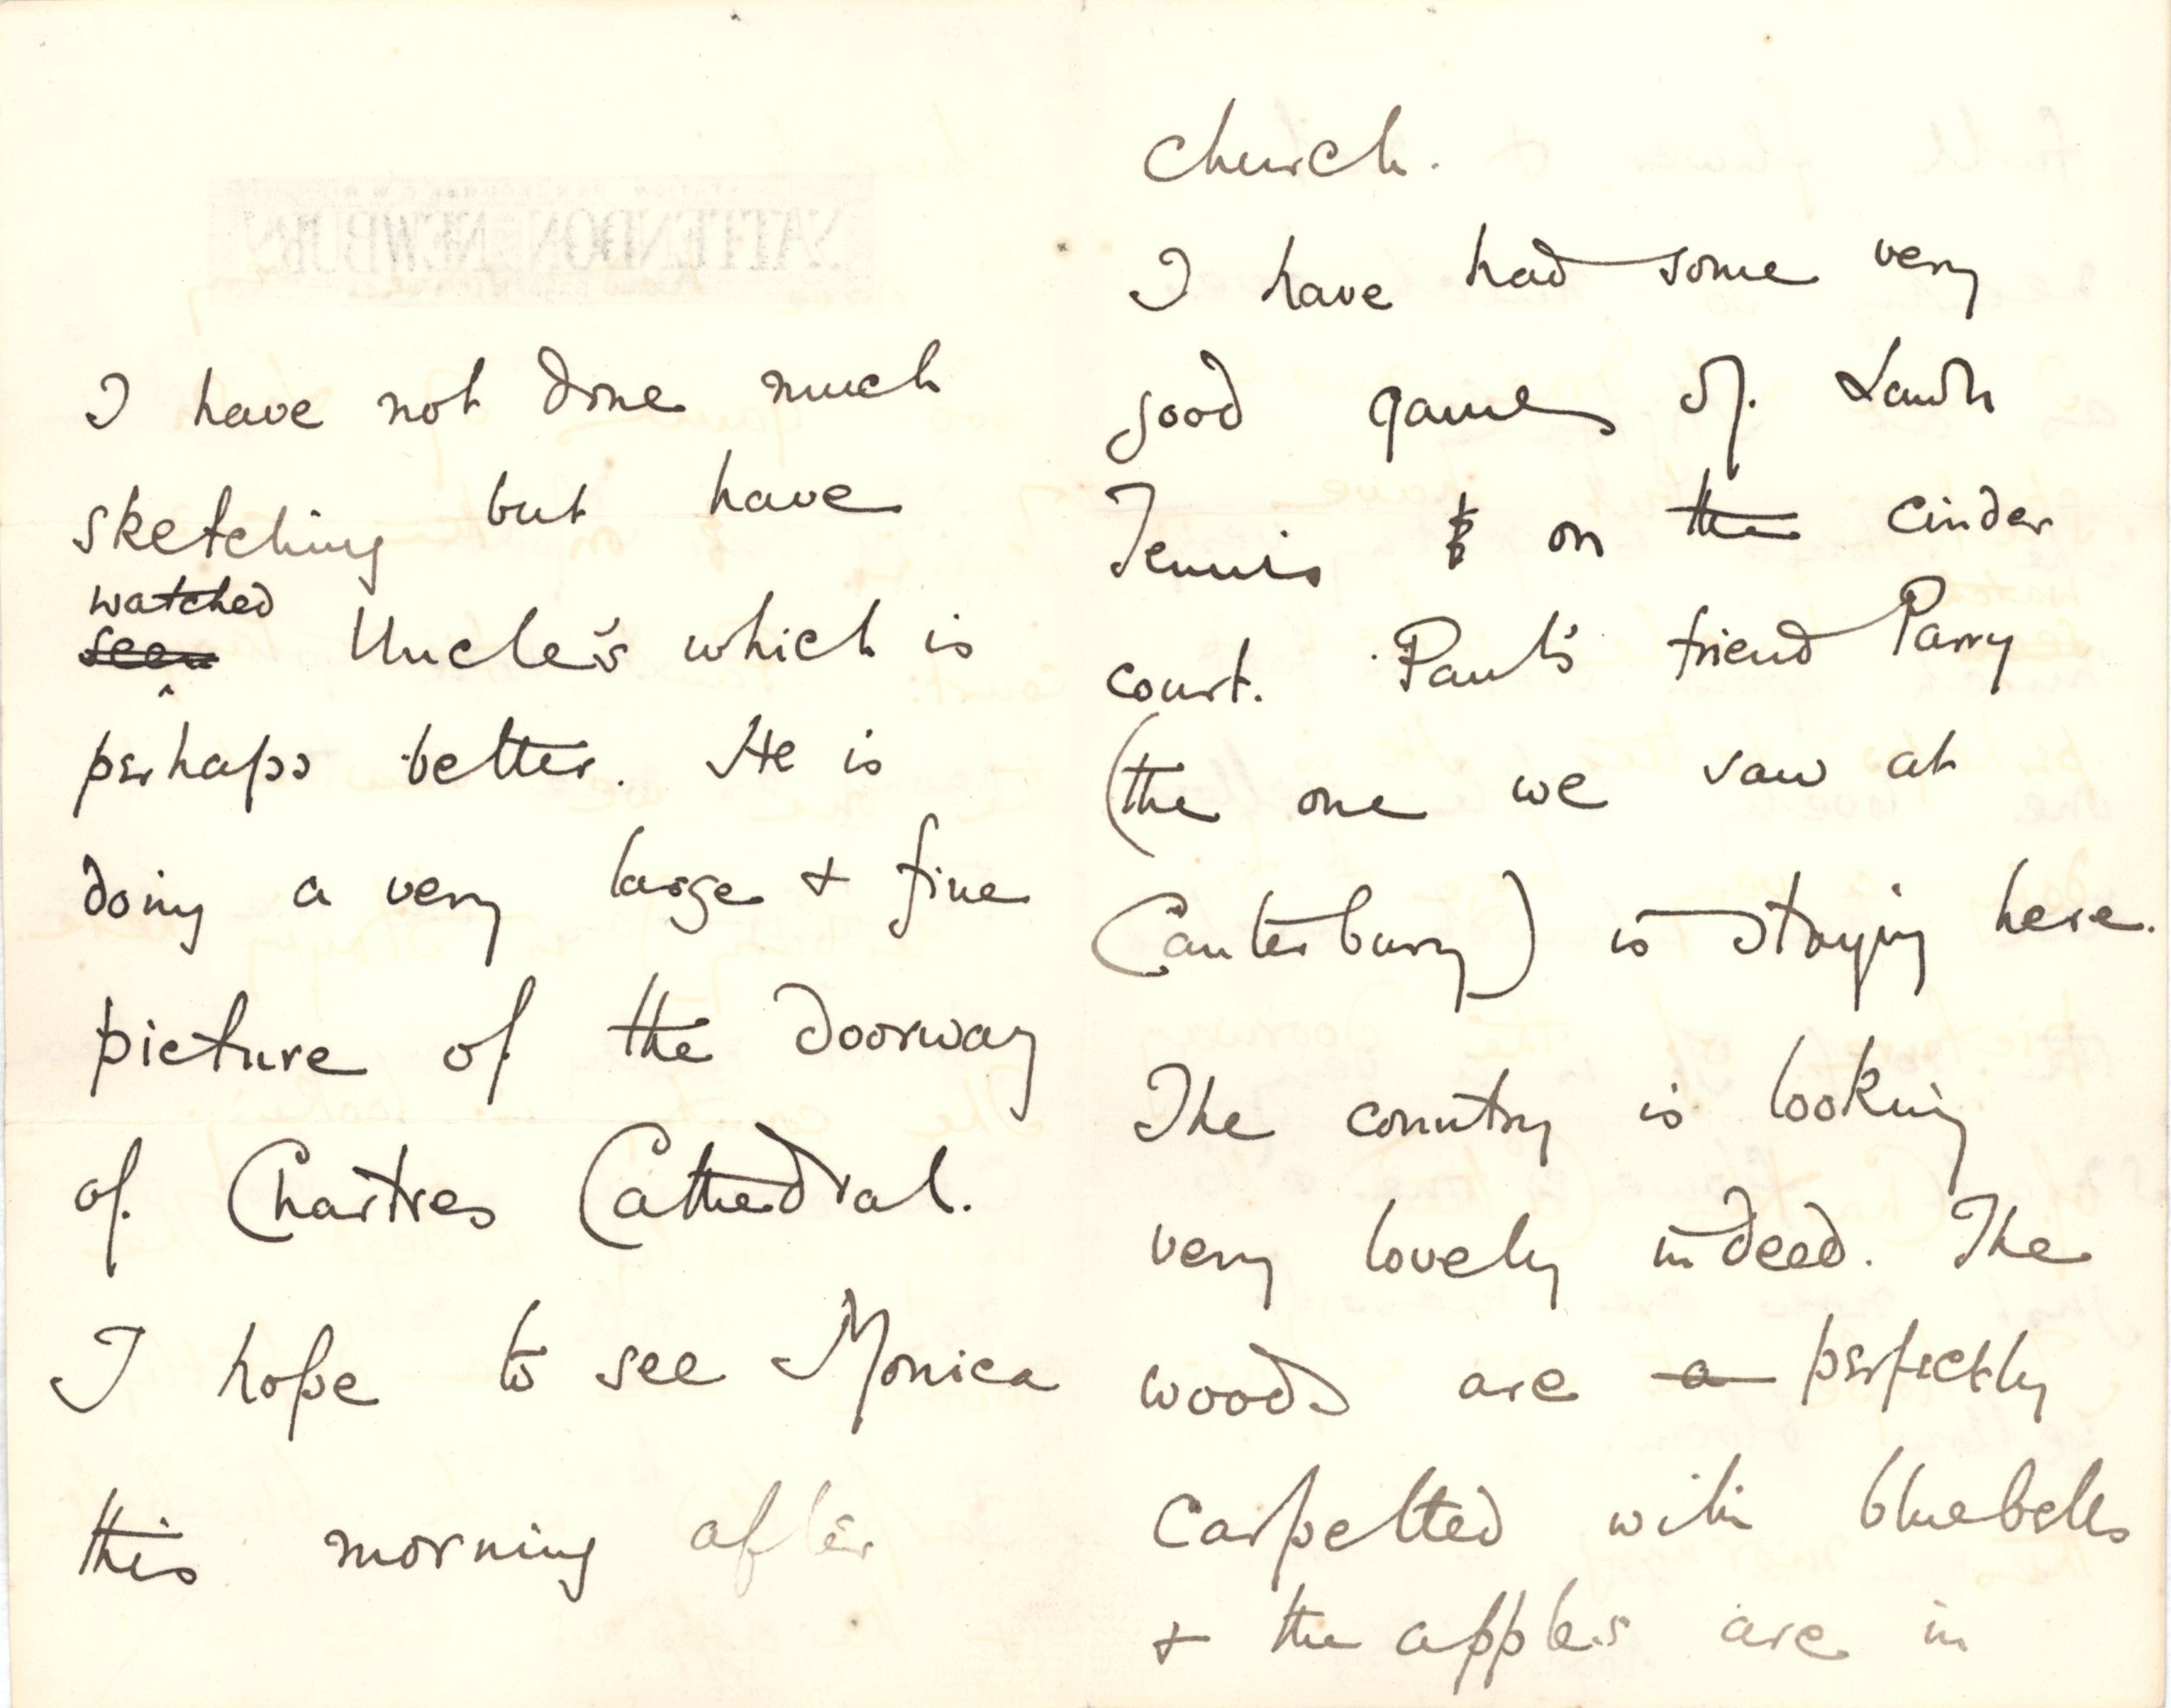 I have not done much
sketching but have
watched
seen Uncle's which is
perhaps better. He is
doing a very large & fine
picture of the doorway
of Chartres Cathedral.
I hope to see Monica
this morning after
church.
I have had some very
good games of Lawn
Tennis on the cinder
court. Paul's friend Parry
(the one we saw at
Canterbury) is staying here.
The country is looking
very lovely indeed. The
woods are a perfectly
carpetted with bluebells
& the apples are in
YATTENDON NEWBURY